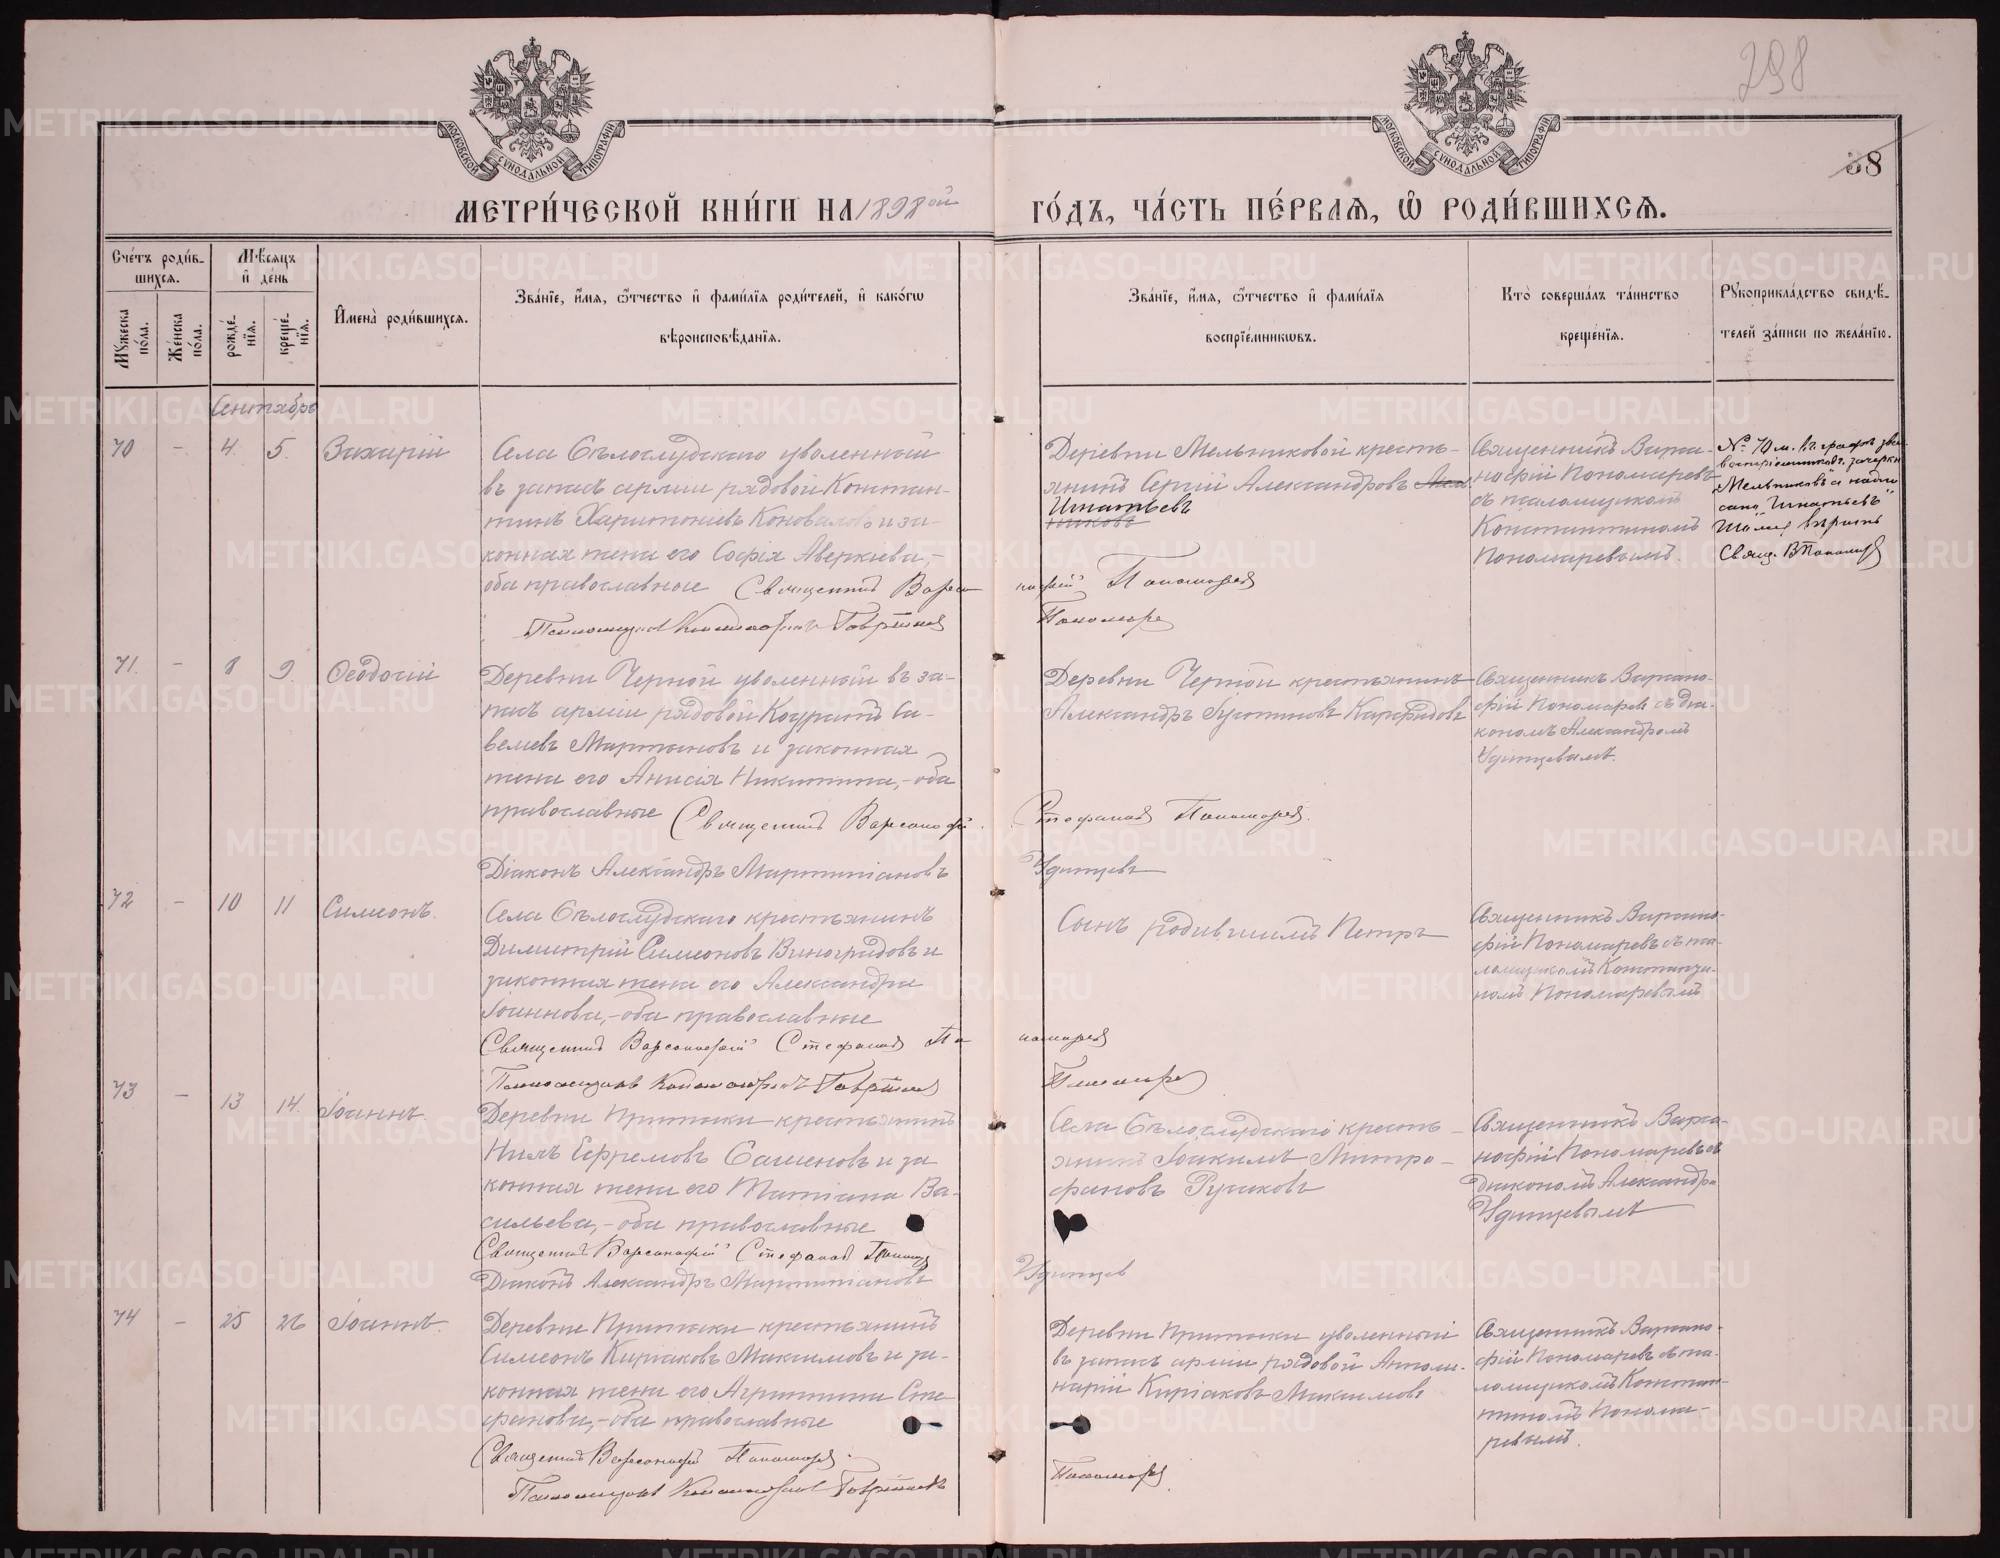 298
38
МОСКОВСКОЙ СѴНОДАЛЬНОЙ ТИПОГРАФІИ
МОСКОВСКОЙ СѴНОДАЛЬНОЙ ТИПОГРАФІИ
МЕТРИ́ЧЕСКОЙ КНИ́ГИ НА 1898ой ГО́ДЪ, ЧА́СТЬ ПЕ́РВАѦ, Ѽ РОДИ́ВШИХСѦ.
Сче́тъ роди́в-
шихсѧ.
Мѣ́сѧцъ
и҆ де́нь
Мꙋ́жеска
по́ла.
Же́нска
по́ла.
рожде́-
нїѧ.
креще́-
нїѧ.
И҆мена̀ роди́вшихсѧ.
Зва́нїе, и҆́мѧ, ѻ҆́тчество и҆ фами́лїѧ роди́телей, и҆ како́гѡ
вѣроисповѣ́данїѧ.
Зва́нїе, и҆́мѧ, ѻ҆́тчество и҆ фами́лїѧ
воспрїе́мникѡвъ.
Кто̀ соверша́лъ та́инство
креще́нїѧ.
Рꙋкоприкла́дство свидѣ́-
телей за́писи по жела́нїю.
Сентябрь
70 - 4. 5. Захарій
Села Бѣлослудскаго уволенный
въ запасъ арміи рядовой Констан-
тинъ Харитоніевъ Коноваловъ и за-
конная жена его Софія Аверкіева,-
оба православные Священникъ Варсо
нофій Пономарев
Псаломщикъ Гаврилов
Пономарев
Деревни Мельниковой кресть-
янинъ Сергій Александровъ Мель
Игнатьевъ
никовъ
Священникъ Варса-
нофій Пономаревъ
съ псаломщикомъ
Константиномъ
Пономаревымъ.
№ 70 м. въ графѣ зван.
воспріемниковъ зачеркн.
"Мельниковъ" а надпи
сано "Игнатьевъ"
вѣрить
Свящ. В Пономарев
71. - 8 9. Ѳеодосій
Деревни Черной уволенный въ за-
пасъ арміи рядовой Кодратъ Са-
велиевъ Мартыновъ и законная
жена его Анисія Никитина,-оба
православные Священникъ Варсонофій
Стефанов Пономарев.
Діаконъ Александръ Мартиніановъ
Удинцевъ
Деревни Черной крестьянинъ
Александръ Іустиновъ
Священникъ Варсано-
фій Пономаревъ съ діа-
кономъ Александромъ
Удинцевымъ.
72 - 10 11 Симеонъ.
Села Бѣлослудскаго крестьянинъ
Димитрій Симеоновъ Виноградовъ и
законная жена его Александра
Іоаннова,-оба православные
Священникъ Варсонофій Стефанов По
номарев
Псаломщикъ Гаврилов
Пономарев
Сынъ родившимъ Петръ
Священникъ Варсано-
фій Пономаревъ съ пса-
ломщикомъ Константи-
номъ Пономаревымъ
73 - 13 14. Іоаннъ.
Деревни Притыки крестьянинъ
Нилъ Ефремовъ и за
конная жена его Татіана Ва-
сильева,-оба православные
Священникъ Варсонофій Стефанов Пономар
Діаконъ Александръ Мартиніановъ
Удинцев
Села Бѣлослудскаго кресть-
янинъ Іоакимъ Митро-
фановъ Русаковъ
Священникъ Варса-
нофій Пономаревъ съ
діакономъ Александро
Удинцевымъ
74 - 25 26 Іоаннъ.
Деревни Притыки крестьянинъ
Симеонъ Киріаковъ Максимовъ и за-
конная жена его Агриппина Сте
фанова,-оба православные
Священникъ Варсонофій Пономарев.
Псаломщикъ Гаврилов
Пономарев
Деревни Притыки уволенный
въ запасъ арміи рядовой Аполи-
нарій Киріаковъ Максимовъ
Священникъ Варсано-
фій Пономаревъ съ пса-
ломщикомъ Констан-
тиномъ Понома-
ревымъ.
METRIKI.GASO-URAL.RU